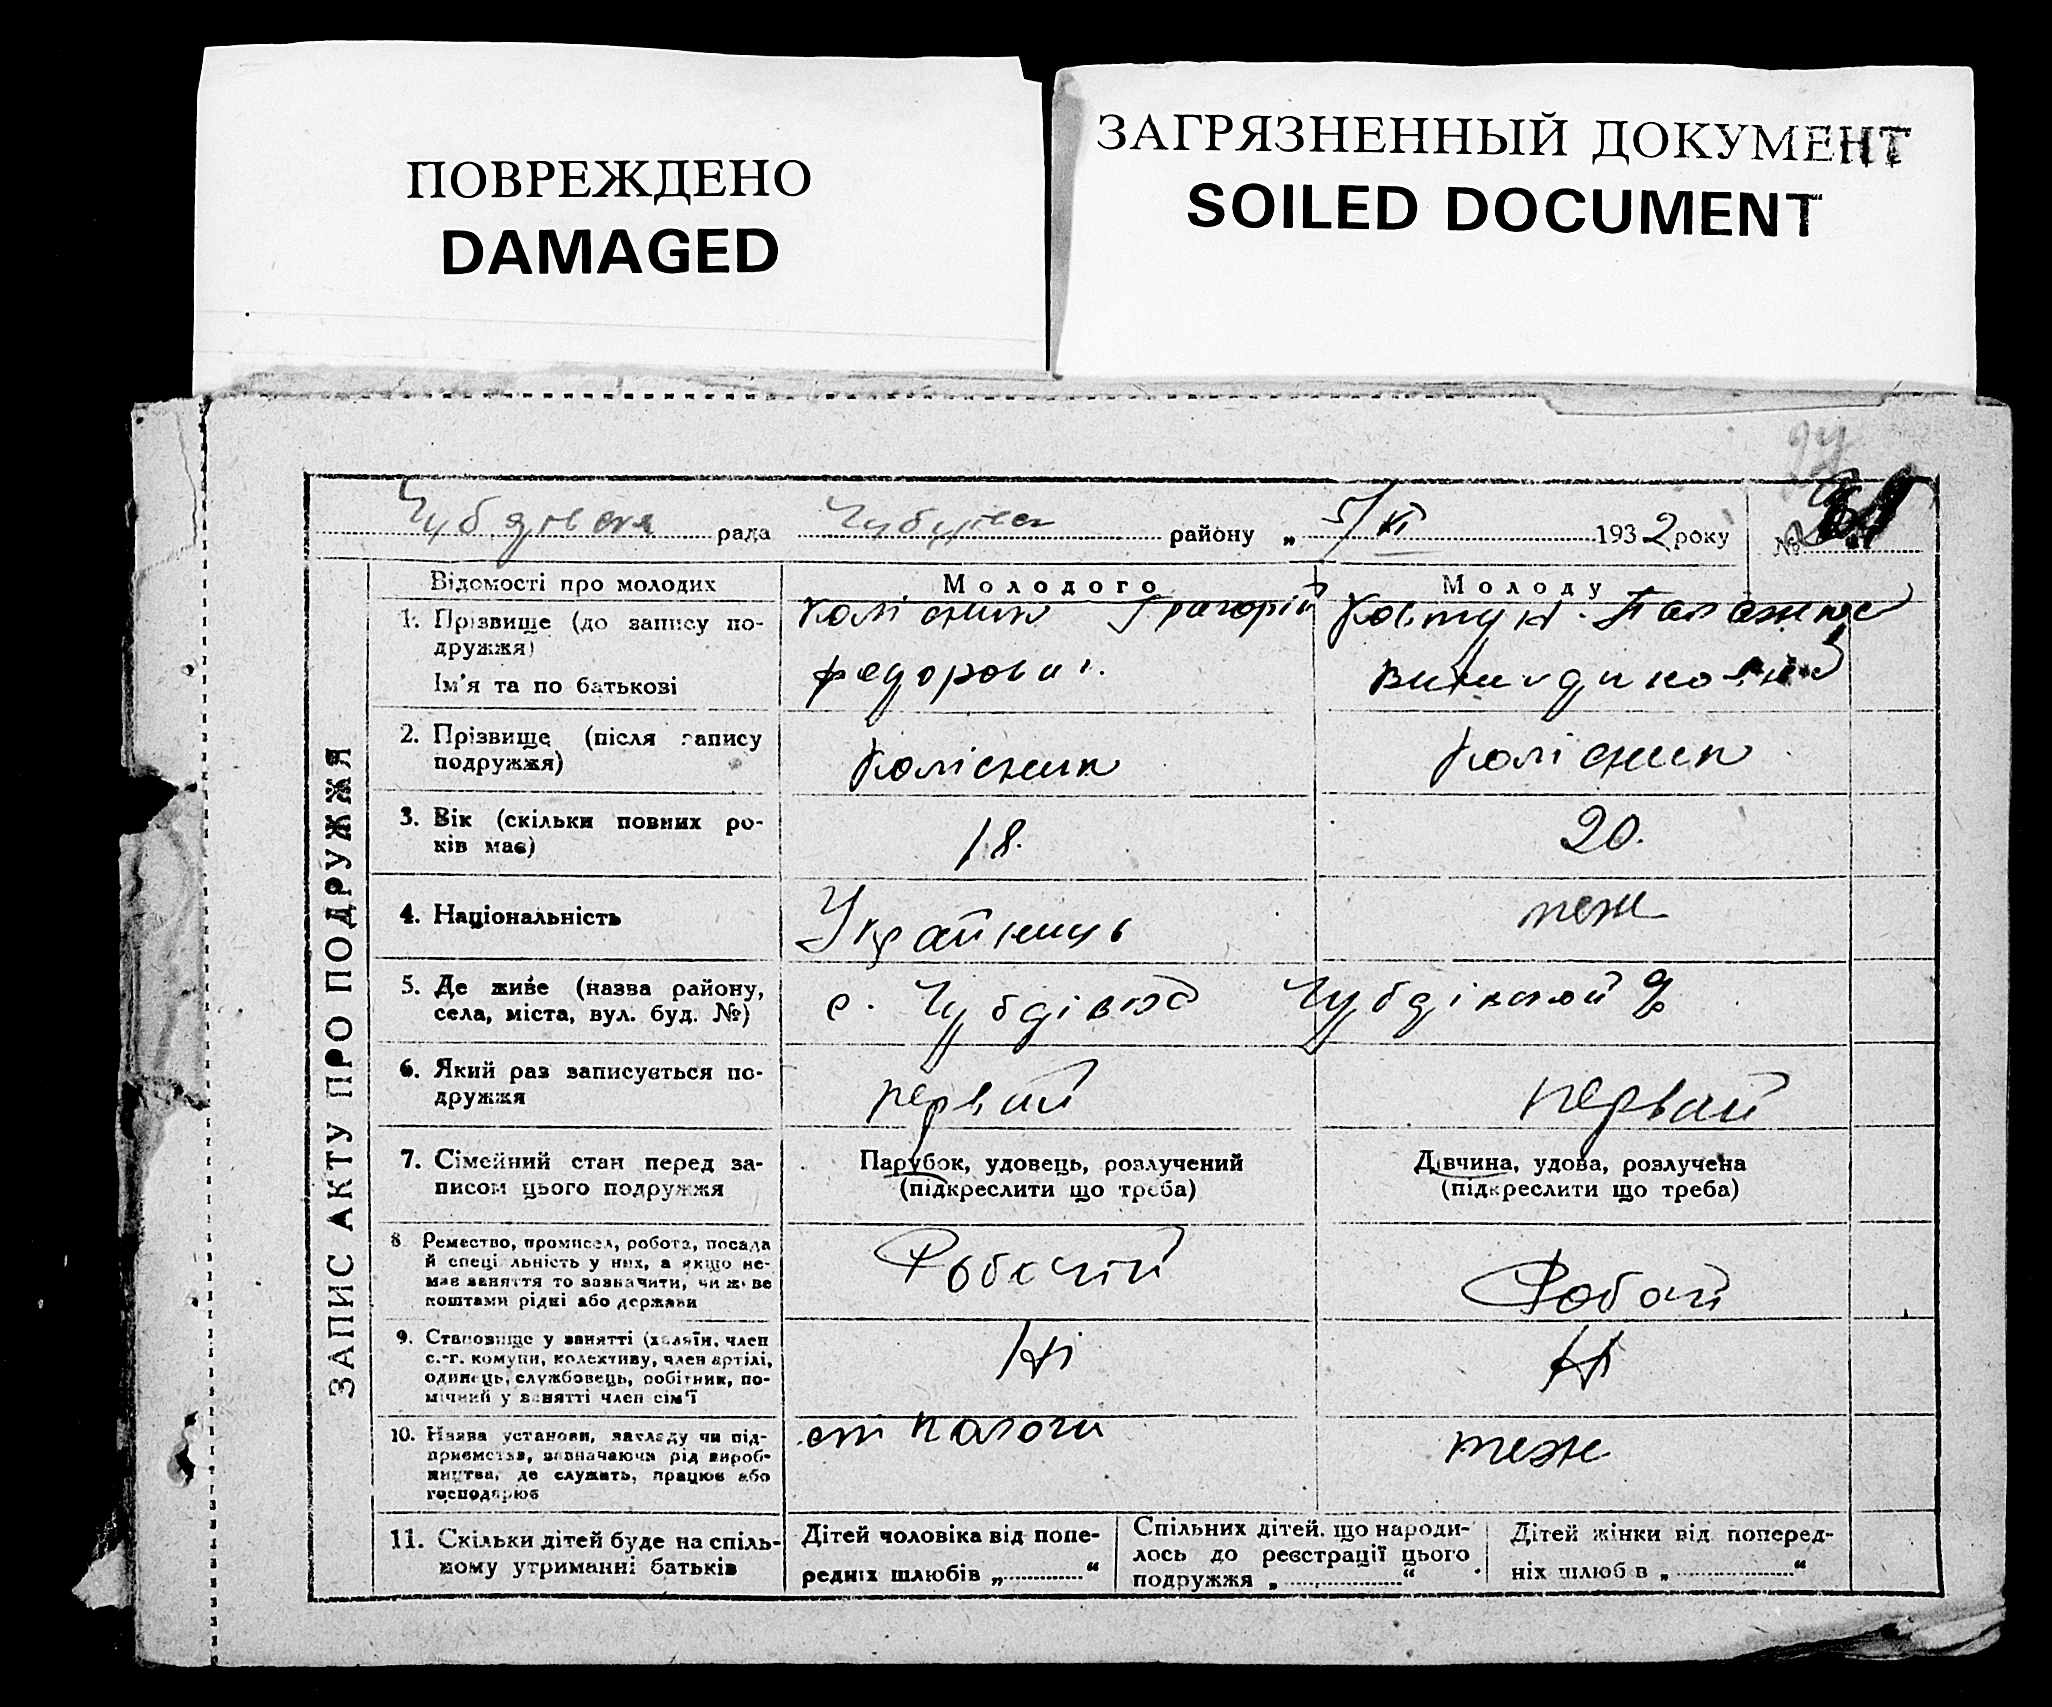 ПОВРЕЖДЕНО
DAMAGED
ЗАГРЯЗНЕННЫЙ ДОКУМЕНТ
SOILED DOCUMENT
рада району „ 5/VI 1932 року №
ЗАПИС АКТУ ПРО ПОДРУЖЖЯ
Відомості про молодих
Молодого
Молоду
1. Прізвище (до запису по-
дружжя)
Ім'я та по батькові
Колісник Григорій
федорови.
Ковтун
2. Прізвище (після запису
подружжя)
Колісник
Колісник
3. Вік (скільки повних ро-
ків має)
18.
20.
4. Національність
Украйнець
теж
5. Де живе (назва району,
села, міста, вул. буд. №)
с. Чубдівка Чубдівской
6. Який раз записується по-
дружжя
первай
первай
7. Сімейний стан перед за-
писом цього подружжя
Парубок, удовець, розлучений
(підкреслити що треба)
Дівчина, удова, розлучена
(підкреслити що треба)
8. Ремество, промисел, робота, посада
й спеціальність у них, а якщо не-
має заняття то зазначити, чи живе
коштами рідні або держави
Робочій
Робочй
9. Становище у занятті (хазяїн, член
с.-г. комуни, колективу, член артілі,
одинець, службовець, робітник, по-
мічний у занятті член сім'ї
Ні
Ні
10. Назва установи, закладу чи під-
приємства, зазначаючи рід вироб-
ництва, де служить, працює або
господарює
теж
11. Скільки дітей буде на спіль-
ному утриманні батьків
Дітей чоловіка від попе-
редніх шлюбів „ “
Спільних дітей, що народи-
лось до реєстрації цього
подружжя „ “
Дітей жінки від поперед-
ніх шлюбів „ “